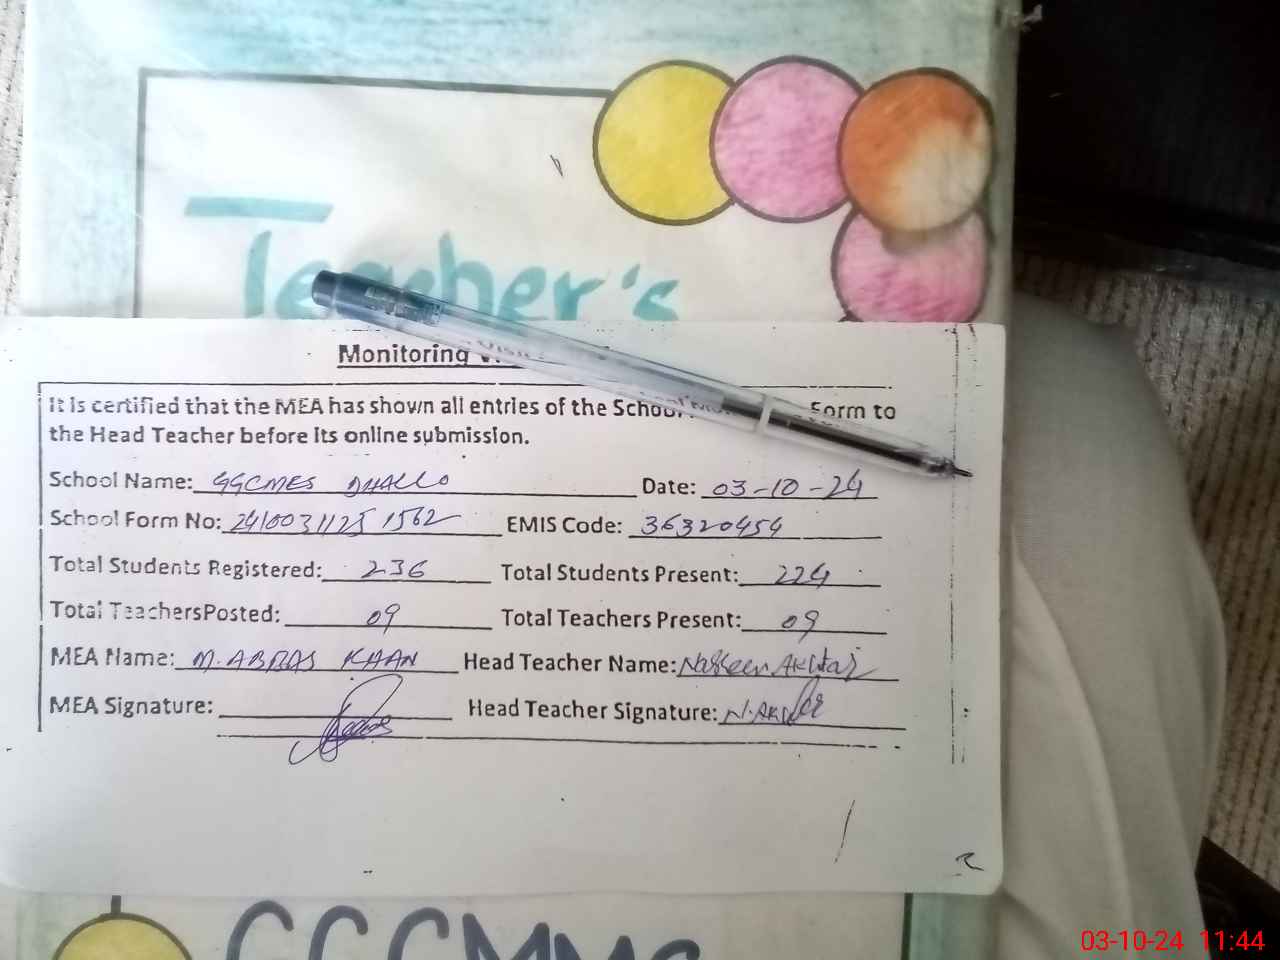 Teacher's
Monitoring
It is certified that the MEA has shown all entries of the School Form to
the Head Teacher before its online submission.
School Name: GGCMES DHALLO Date: 03-10-24
School Form No: 2410031125 1562 EMIS Code: 36320454
Total Students Registered: 236 Total Students Present: 224
Total TeachersPosted: 09 Total Teachers Present: 09
MEA Name: M. ABRAS KHAN Head Teacher Name: Nasreen Akhtar
MEA Signature: Head Teacher Signature: N. Akhtar
03-10-24 11:44